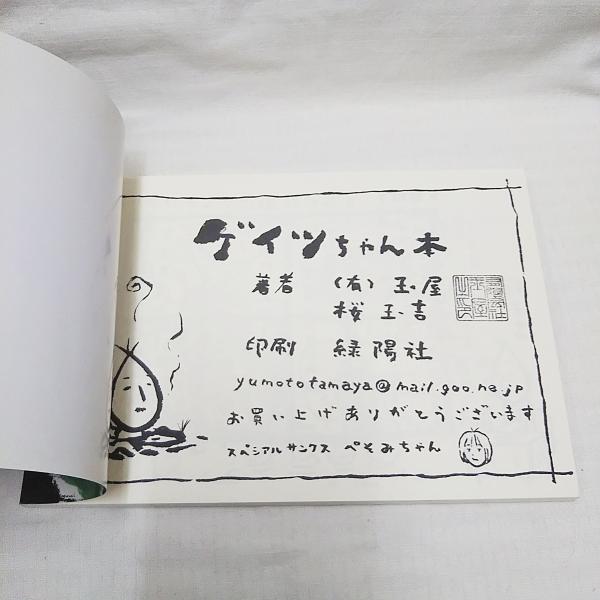 ゲイツちゃん本
著者 (有)玉屋
桜玉吉
印刷 緑陽社
yumototamaya@mail.goo.ne.jp
お買い上げありがとうございます
スペシャルサンクス ぺそみちゃん